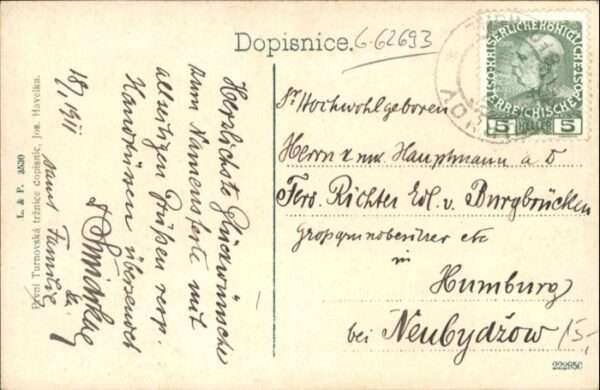 Dopisnice.
6-62693
Herzlichste Glückwünsche
zum Namensfeste mit
allseitigen Grüßen resp.
Handküssen übersendet
samt Familie
18/1 1911
Sr Hochwohlgeboren
Herrn k. u. k. Hauptmann a D
Ferd. Richter Edl. v. Burgbrücken
Großgrundbesitzer etc
in
Humburg
bei Neubydžow
15-
KAISERLICHE KÖNIGLICHE
ÖSTERREICHISCHE
5 HELLER 5
L. & P. 3530
První Turnovská tržnice dopisnic, Jos. Havelka.
222950